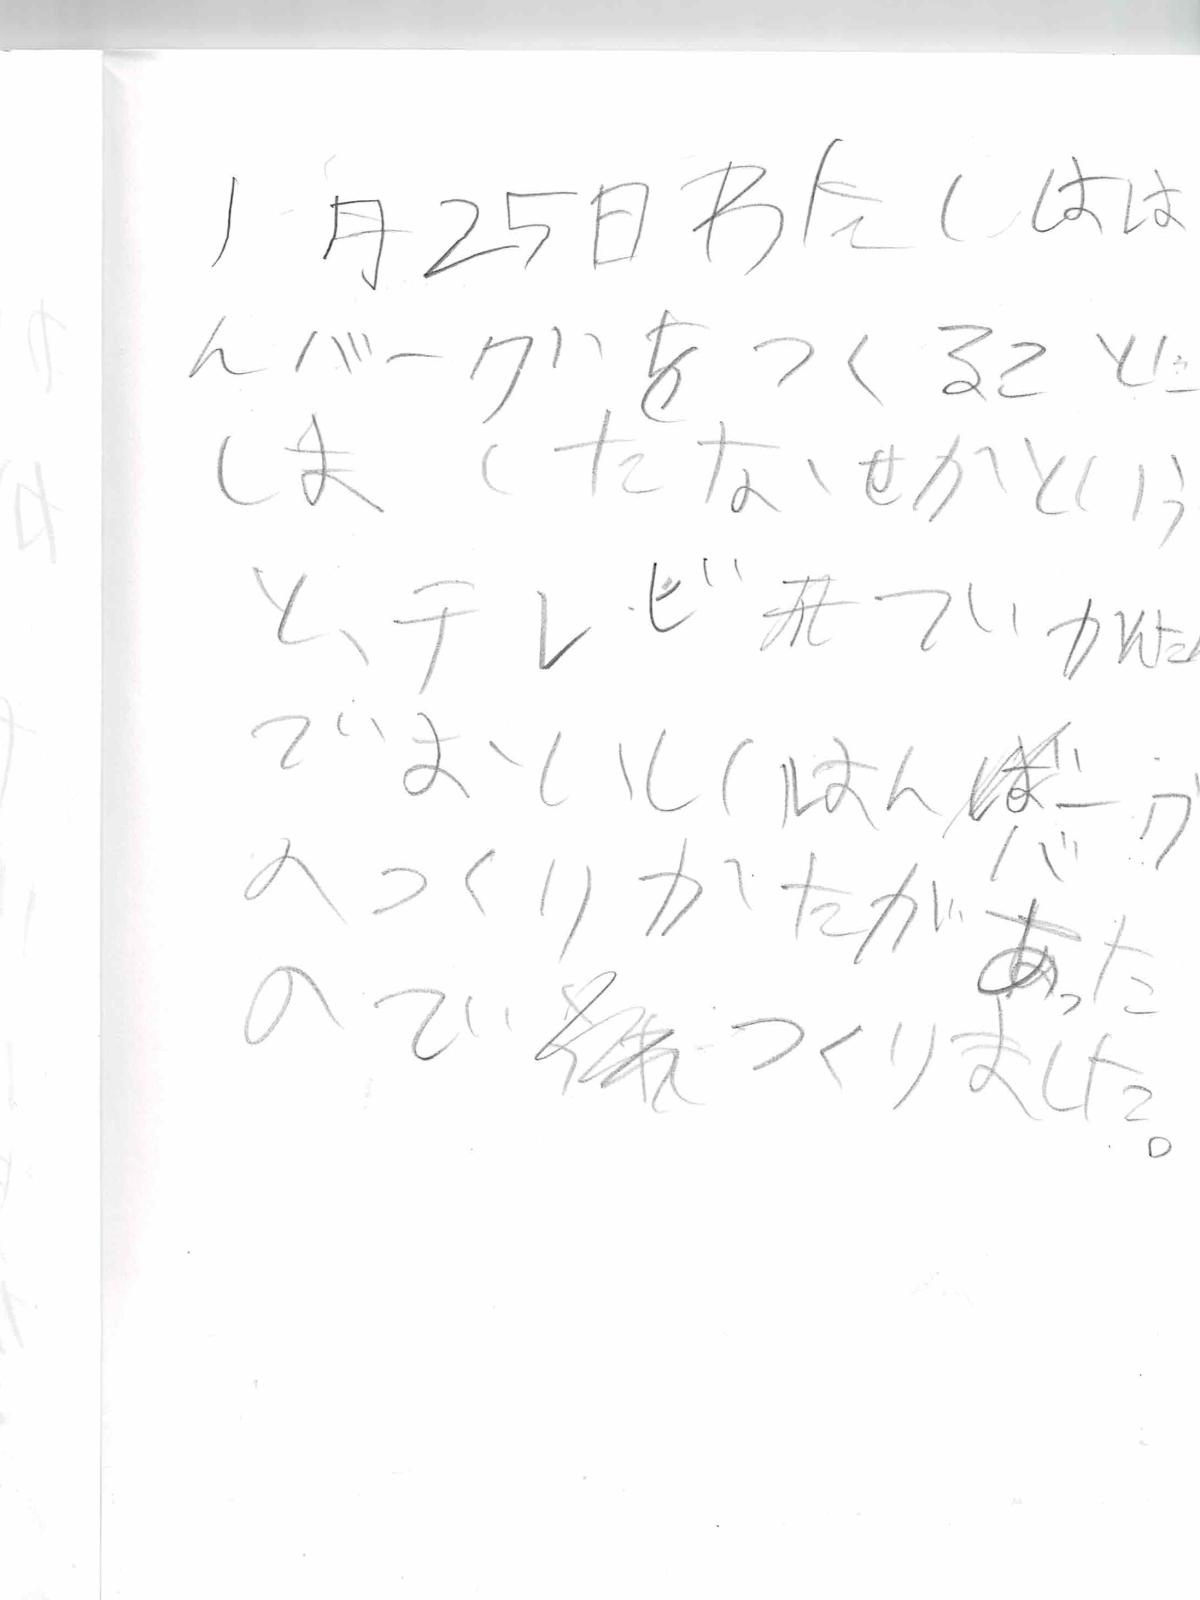 1月25日わたしはは
んバーグをつくることに
しましたなぜかという
と、テレビでかんたん
でおいしいはんバーグ
のつくりかたがあった
のでつくりました。